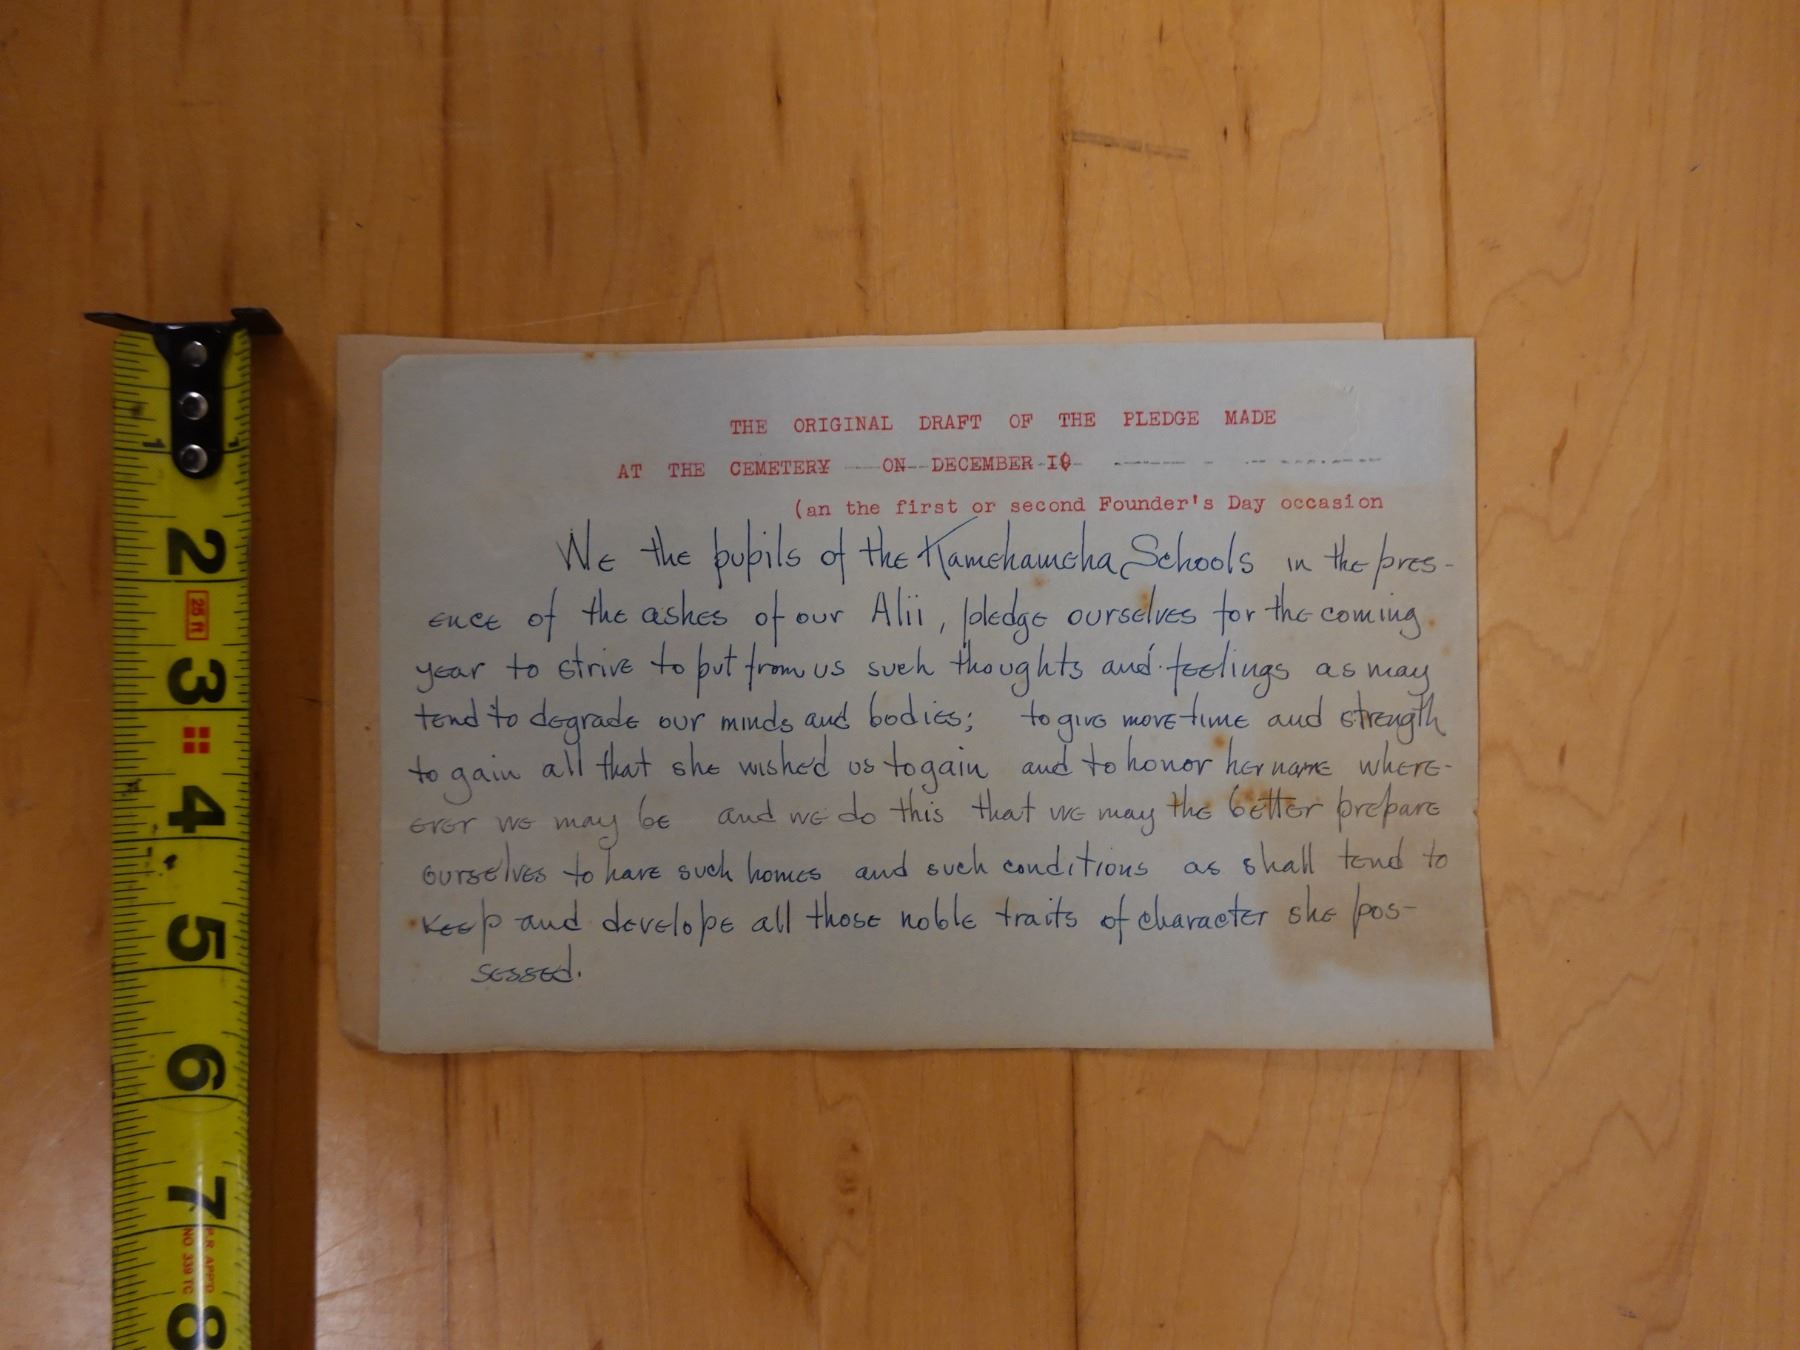 THE ORIGINAL DRAFT OF THE PLEDGE MADE
AT THE CEMETERY ON DECEMBER
(an the first or second Founder's Day occasion
We the pupils of the Kamehameha Schools in the pres-
ence of the ashes of our Alii, pledge ourselves for the coming
year to strive to put from us such thoughts and feelings as may
tend to degrade our minds and bodies; to give more time and strength
to gain all that she wished us to gain and to honor her name where-
ever we may be and we do this that we may the better prepare
ourselves to have such homes and such conditions as shall tend to
keep and develope all those noble traits of character she pos-
sessed.
1 1
2
25 ft
3
4
5
6
7
NO 339 TC
8